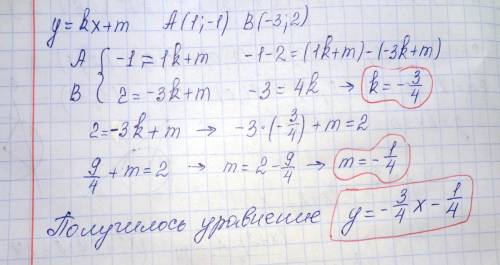 y=kx+m A(1;-1) B(-3;2)
A { -1=1k+m -1-2=(1k+m)-(-3k+m)
B { 2=-3k+m -3=4k → k=-3/4
2=-3k+m → -3·(-3/4)+m=2
9/4+m=2 → m=2-9/4 → m=-1/4
Получилось уравнение y=-3/4x-1/4